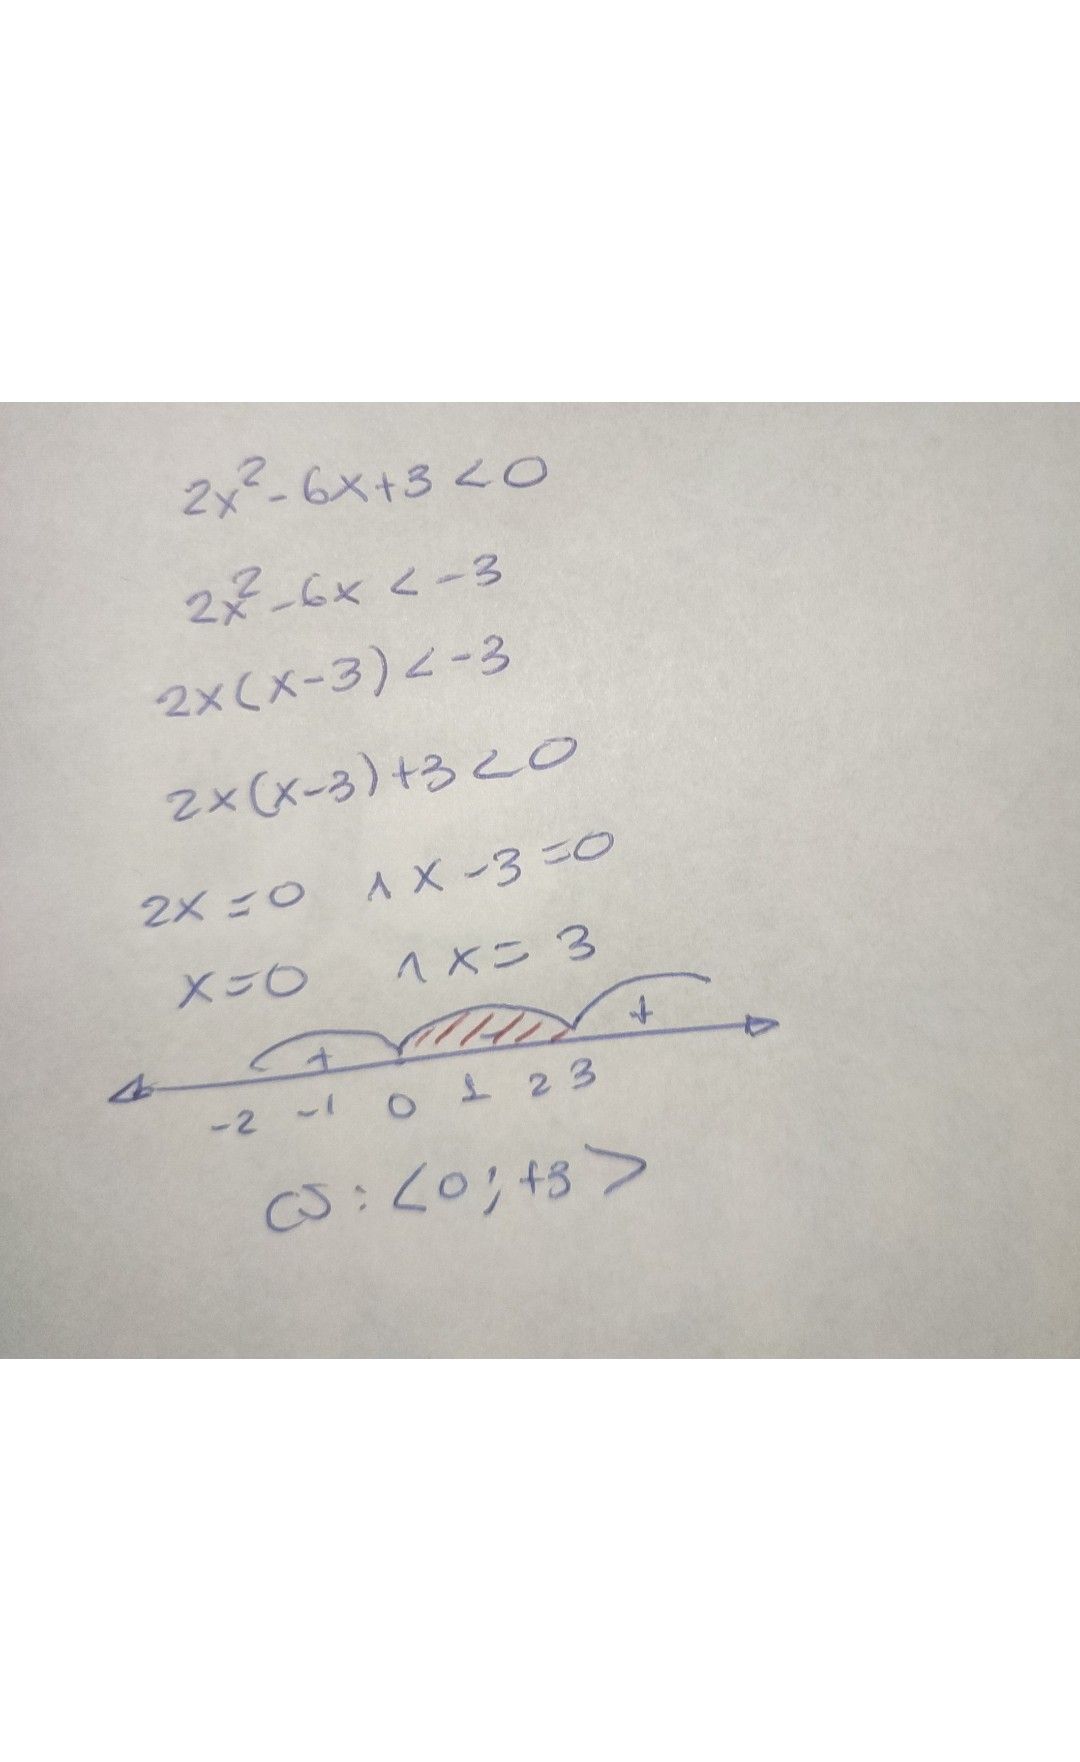 2x²-6x+3<0
2x²-6x<-3
2x(x-3)<-3
2x(x-3)+3<0
2x=0 ∧ x-3=0
x=0 ∧ x=3
+ - +
-2 -1 0 1 2 3
CS: <0;+3>